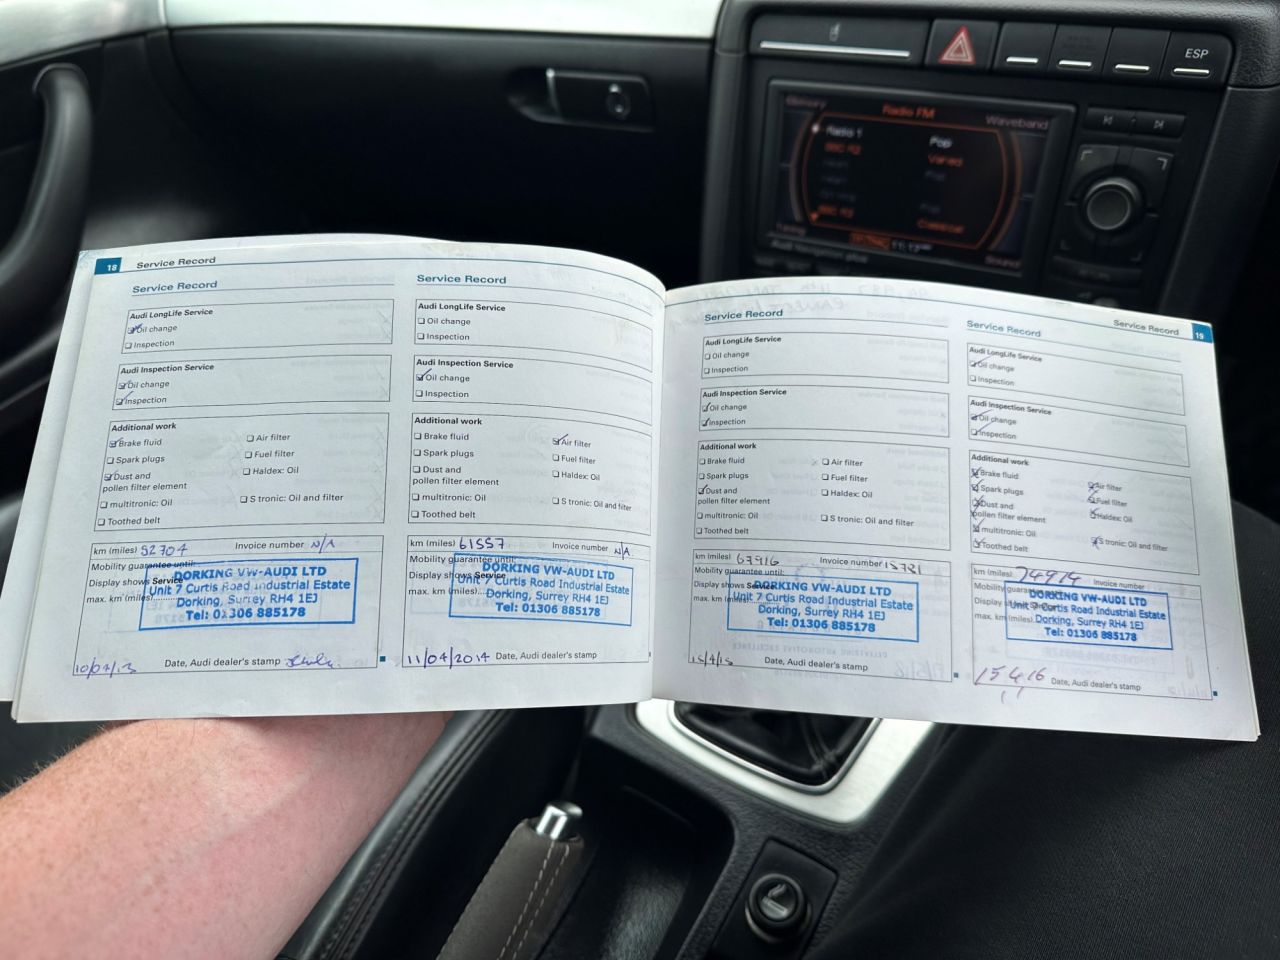 ESP
Memory
Radio FM
Waveband
Radio 1
Pop
BBC R2
Varied
BBC R3
Classical
Sound
18 Service Record
Service Record
Audi LongLife Service
Oil change
Inspection
Audi Inspection Service
Oil change
Inspection
Additional work
Brake fluid
Air filter
Spark plugs
Fuel filter
Dust and
pollen filter element
Haldex: Oil
multitronic: Oil
S tronic: Oil and filter
Toothed belt
km (miles) 52704 Invoice number N/A
Mobility guarantee until:
Display shows Service
max. km (miles)
DORKING VW-AUDI LTD
Unit 7 Curtis Road Industrial Estate
Dorking, Surrey RH4 1EJ
Tel: 01306 885178
10/04/13 Date, Audi dealer's stamp
Service Record
Audi LongLife Service
Oil change
Inspection
Audi Inspection Service
Oil change
Inspection
Additional work
Brake fluid
Air filter
Spark plugs
Fuel filter
Dust and
pollen filter element
Haldex: Oil
multitronic: Oil
S tronic: Oil and filter
Toothed belt
km (miles) 61557 Invoice number N/A
Mobility guarantee until:
Display shows Service
max. km (miles)
DORKING VW-AUDI LTD
Unit 7 Curtis Road Industrial Estate
Dorking, Surrey RH4 1EJ
Tel: 01306 885178
11/04/2014 Date, Audi dealer's stamp
Service Record
Audi LongLife Service
Oil change
Inspection
Audi Inspection Service
Oil change
Inspection
Additional work
Brake fluid
Air filter
Spark plugs
Fuel filter
Dust and
pollen filter element
Haldex: Oil
multitronic: Oil
S tronic: Oil and filter
Toothed belt
km (miles) 67916 Invoice number 15721
Mobility guarantee until:
Display shows Service
max. km (miles)
DORKING VW-AUDI LTD
Unit 7 Curtis Road Industrial Estate
Dorking, Surrey RH4 1EJ
Tel: 01306 885178
15/4/15 Date, Audi dealer's stamp
Service Record 19
Service Record
Audi LongLife Service
Oil change
Inspection
Audi Inspection Service
Oil change
Inspection
Additional work
Brake fluid
Air filter
Spark plugs
Fuel filter
Dust and
pollen filter element
Haldex: Oil
multitronic: Oil
S tronic: Oil and filter
Toothed belt
km (miles) 74974 Invoice number
Mobility guarantee
Display
max. km (miles)
DORKING VW-AUDI LTD
Unit 7 Curtis Road Industrial Estate
Dorking, Surrey RH4 1EJ
Tel: 01306 885178
15 4 16 Date, Audi dealer's stamp